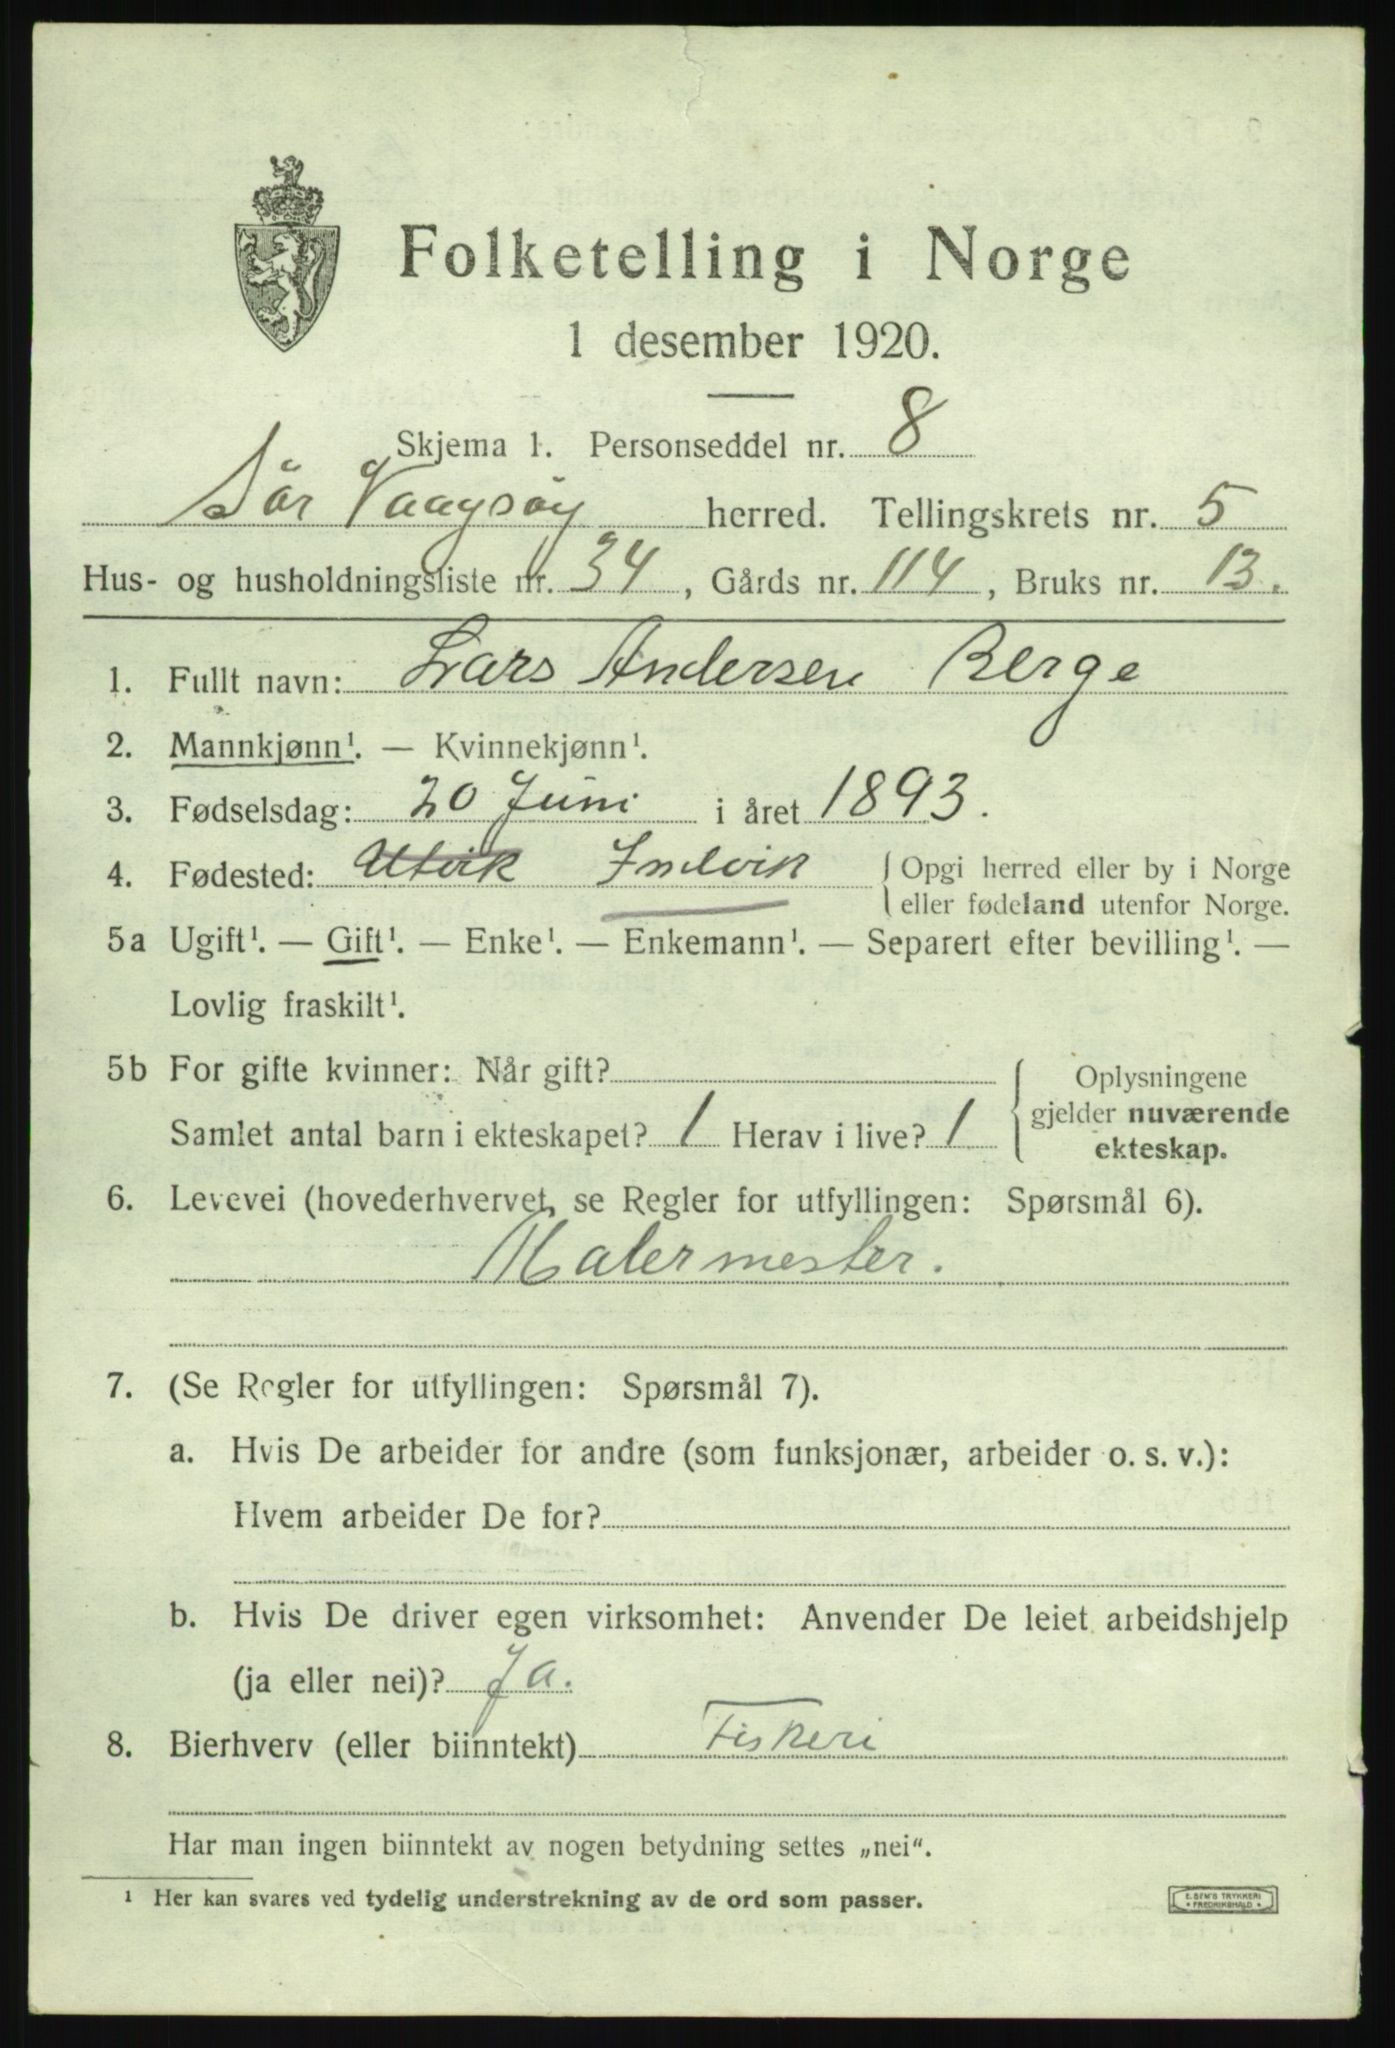 Folketelling i Norge
1 desember 1920.
Skjema 1. Personseddel nr. 8
Sör Vaagsöy herred. Tellingskrets nr. 5
Hus- og husholdningsliste nr. 34, Gårds nr. 114, Bruks nr. 13.
1. Fullt navn: Lars Andersen Berge
2. Mannkjønn¹. — Kvinnekjønn¹.
3. Fødselsdag: 20 Juni i året 1893.
4. Fødested: Utvik Indvik { Opgi herred eller by i Norge
eller fødeland utenfor Norge.
5a Ugift¹. — Gift¹. — Enke¹. — Enkemann¹. — Separert efter bevilling¹. —
Lovlig fraskilt¹.
5b For gifte kvinner: Når gift?
Samlet antal barn i ekteskapet? 1 Herav i live? 1
{ Oplysningene
gjelder nuværende
ekteskap.
6. Levevei (hovederhvervet, se Regler for utfyllingen: Spørsmål 6).
Malermester.
7. (Se Regler for utfyllingen: Spørsmål 7).
a. Hvis De arbeider for andre (som funksjonær, arbeider o. s. v.):
Hvem arbeider De for?
b. Hvis De driver egen virksomhet: Anvender De leiet arbeidshjelp
(ja eller nei)? Ja.
8. Bierhverv (eller biinntekt) Fiskeri
Har man ingen biinntekt av nogen betydning settes „nei“.
¹ Her kan svares ved tydelig understrekning av de ord som passer.
E. SEM'S TRYKKERI
• FREDRIKSHALD •